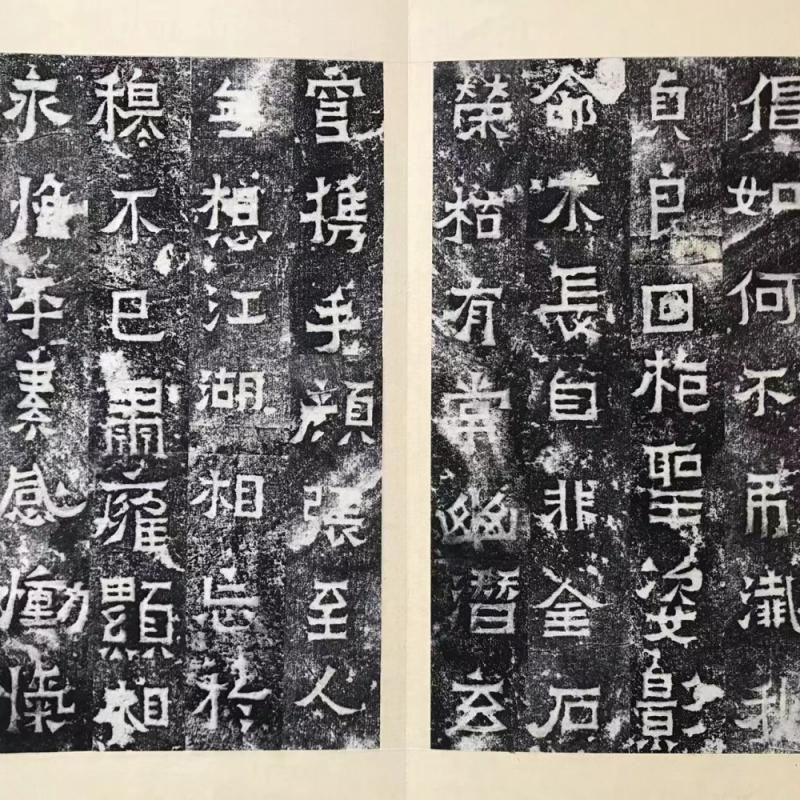 倡如何不弔瀸我
貞良回柜聖姿影
命不長自非金石
榮枯有常幽潛玄
穹携手顏張至人
無想江湖相忘於
穆不已肅雍顯相
永惟平素感慟